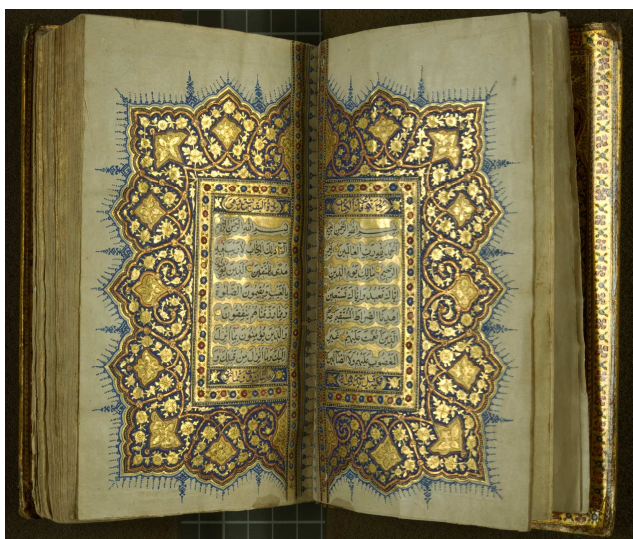 فاتحة الكتاب
بسم الله الرحمن الرحيم
الحمد لله رب العالمين الرحمن
الرحيم مالك يوم الدين
اياك نعبد واياك نستعين
اهدنا الصراط المستقيم صراط
الذين انعمت عليهم غير
المغضوب عليهم ولا الضالين
بسم الله الرحمن الرحيم
الم ذلك الكتاب لا ريب فيه
هدى للمتقين الذين يؤمنون
بالغيب ويقيمون الصلوة
ومما رزقناهم ينفقون
والذين يؤمنون بما انزل
اليك وما انزل من قبلك و